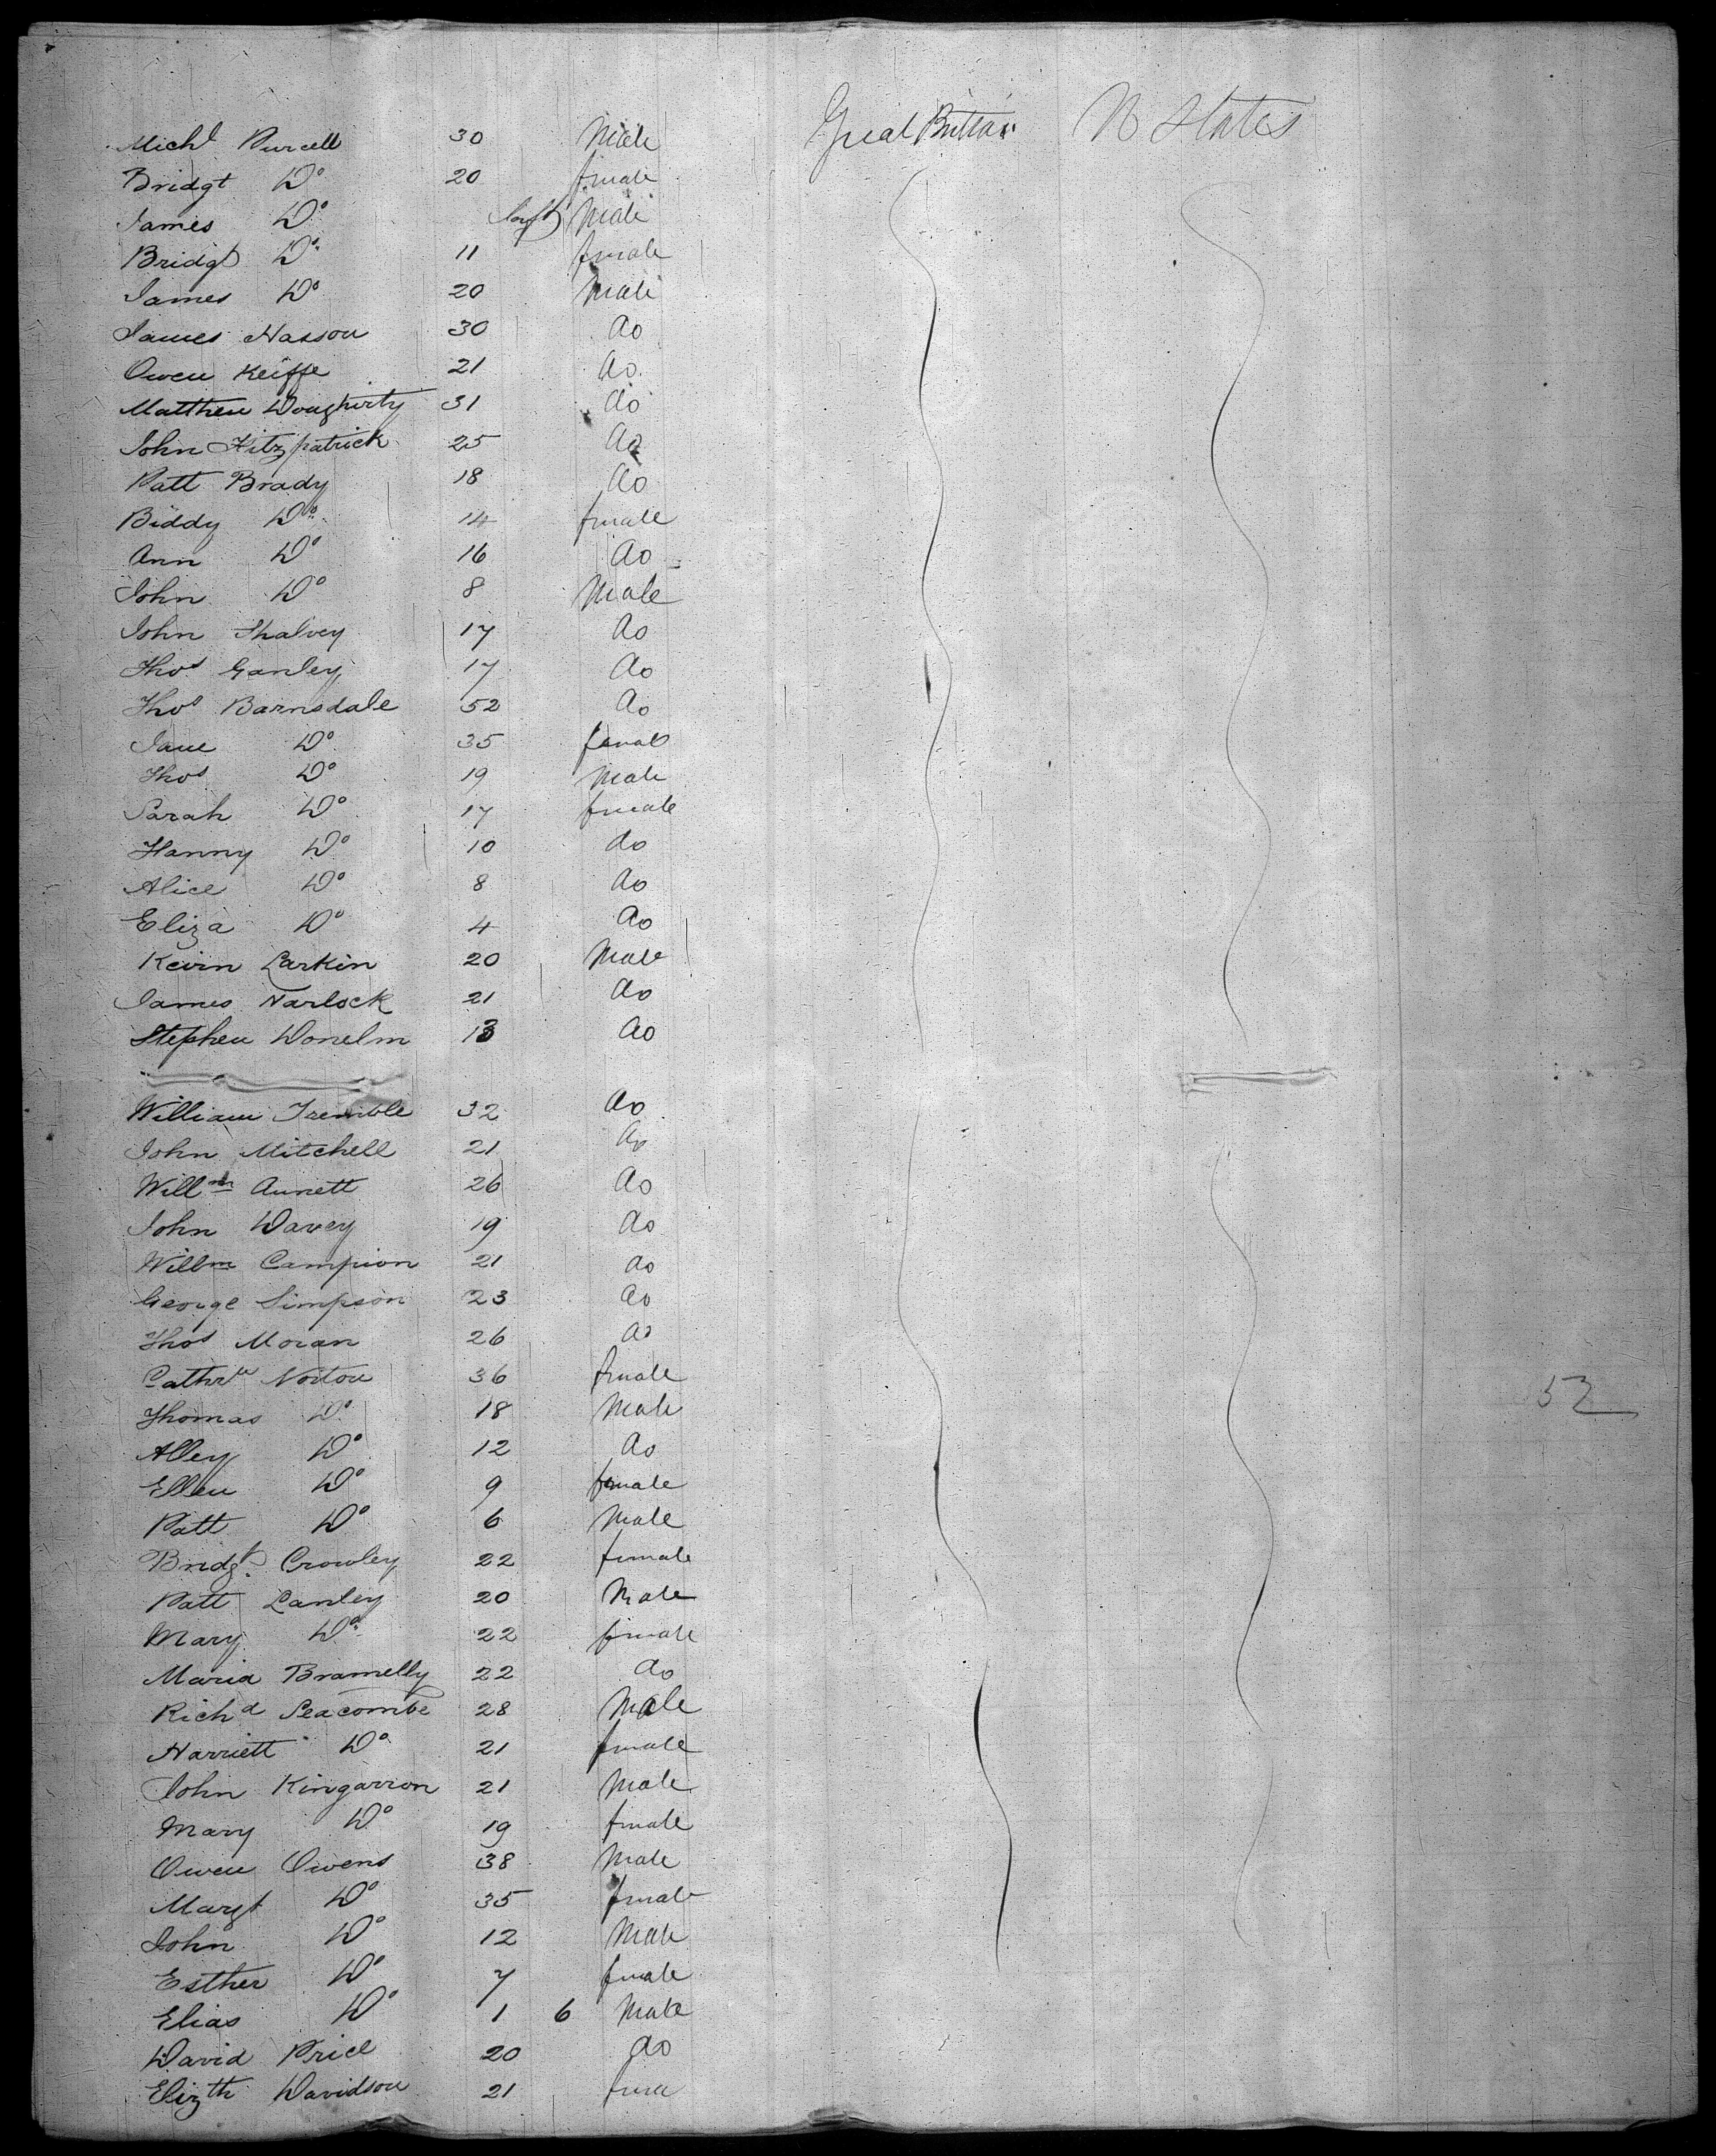 Michl Purcell 30 Male Great Britain U States
Bridgt Do 20 female
James Do Inft Male
Bridgt Do 11 female
James Do 20 Male
James Hasson 30 do
Owen Keiffe 21 do
Matthew Doughirty 31 do
John Fitzpatrick 25 do
Patt Brady 18 do
Biddy Do 14 female
Ann Do 16 do
John Do 8 Male
John Shalvey 17 do
Thos Ganley 17 do
Thos Barnsdale 52 do
Jane Do 35 female
Thos Do 19 Male
Sarah Do 17 female
Hanny Do 10 do
Alice Do 8 do
Eliza Do 4 do
Kevin Larkin 20 Male
James Narlock 21 do
Stephen Donelm 13 do
William Tremble 32 do
John Mitchell 21 do
Willm Annett 26 do
John Davey 19 do
Willm Campion 21 do
George Simpson 23 do
Thos Moran 26 do
Cathrne Norton 36 female
Thomas Do 18 Male
Alley Do 12 do
Ellen Do 9 female
Patt Do 6 Male
Bridgt Crowley 22 female
Patt Lanley 20 Male
Mary Do 22 female
Maria Bramelly 22 do
Richd Seacombe 28 Male
Harriett Do 21 female
John Kingarron 21 Male
Mary Do 19 female
Owen Owens 38 Male
Margt Do 35 female
John Do 12 Male
Esther Do 7 female
Elias Do 1 6 Male
David Price 20 do
Elizth Davidson 21 fema
52